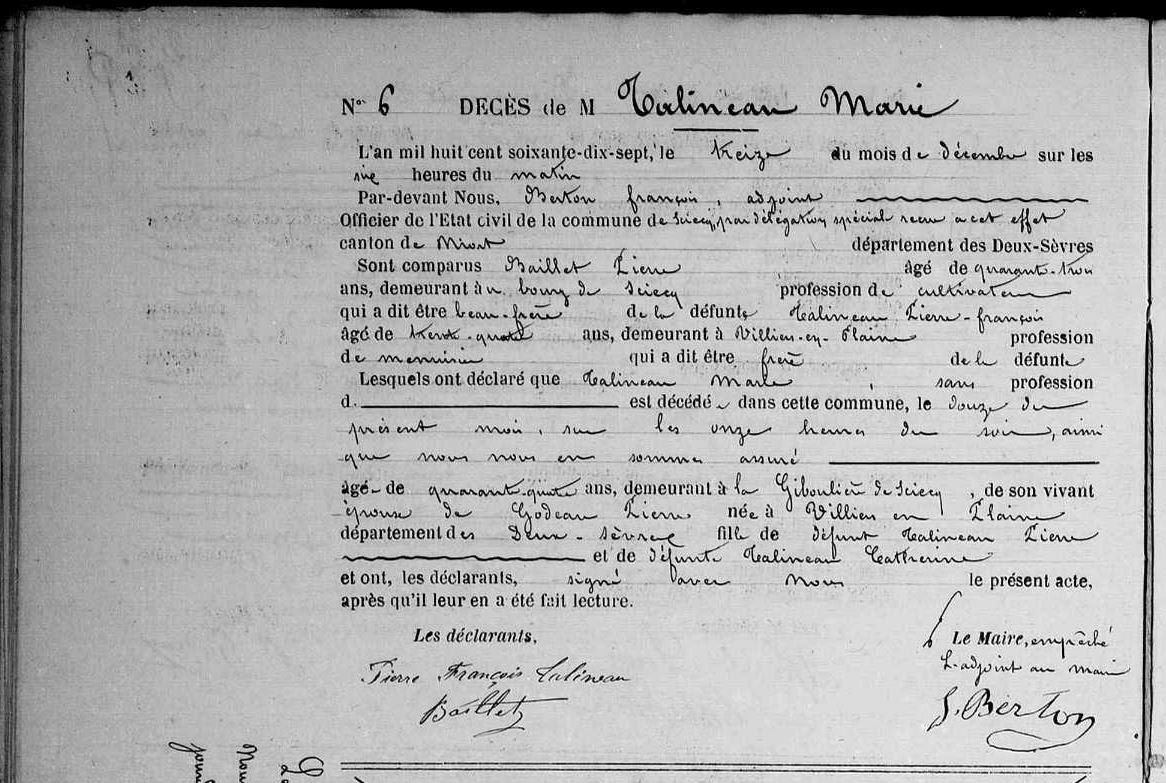 N° 6 DECÈS de M Talineau Marie
L'an mil huit cent soixante-dix-sept, le treize du mois de décembre sur les
neuf heures du matin
Par-devant Nous, Berton françois, adjoint
Officier de l'Etat civil de la commune de Sciecq, par délégation spécial recu a cet effet
canton de Niort département des Deux-Sèvres
Sont comparus Baillet Pierre âgé de quarante-trois
ans, demeurant à u bourg de Sciecq profession de cultivateur
qui a dit être beau-frère de la défunte Talineau Pierre-françois
âgé de trente-quatre ans, demeurant à Villiers-en-Plaine profession
de menuisier qui a dit être frère de la défunte
Lesquels ont déclaré que Talineau Marie, sans profession
d. est décédée dans cette commune, le douze du
présent mois, sur les onze heures du soir, ainsi
que nous nous en sommes assuré
âgée de quarante-quatre ans, demeurant à la Giboulière de Sciecq, de son vivant
épouse de Godeau Pierre née à Villiers en Plaine
département des Deux-Sèvres fille de défunt Talineau Pierre
et de défunte Talineau Catherine
et ont, les déclarants, signé avec nous le présent acte,
après qu'il leur en a été fait lecture.
Les déclarants, Le Maire, empêché
L'adjoint au maire
Pierre François Talineau
Baillet
F. Berton